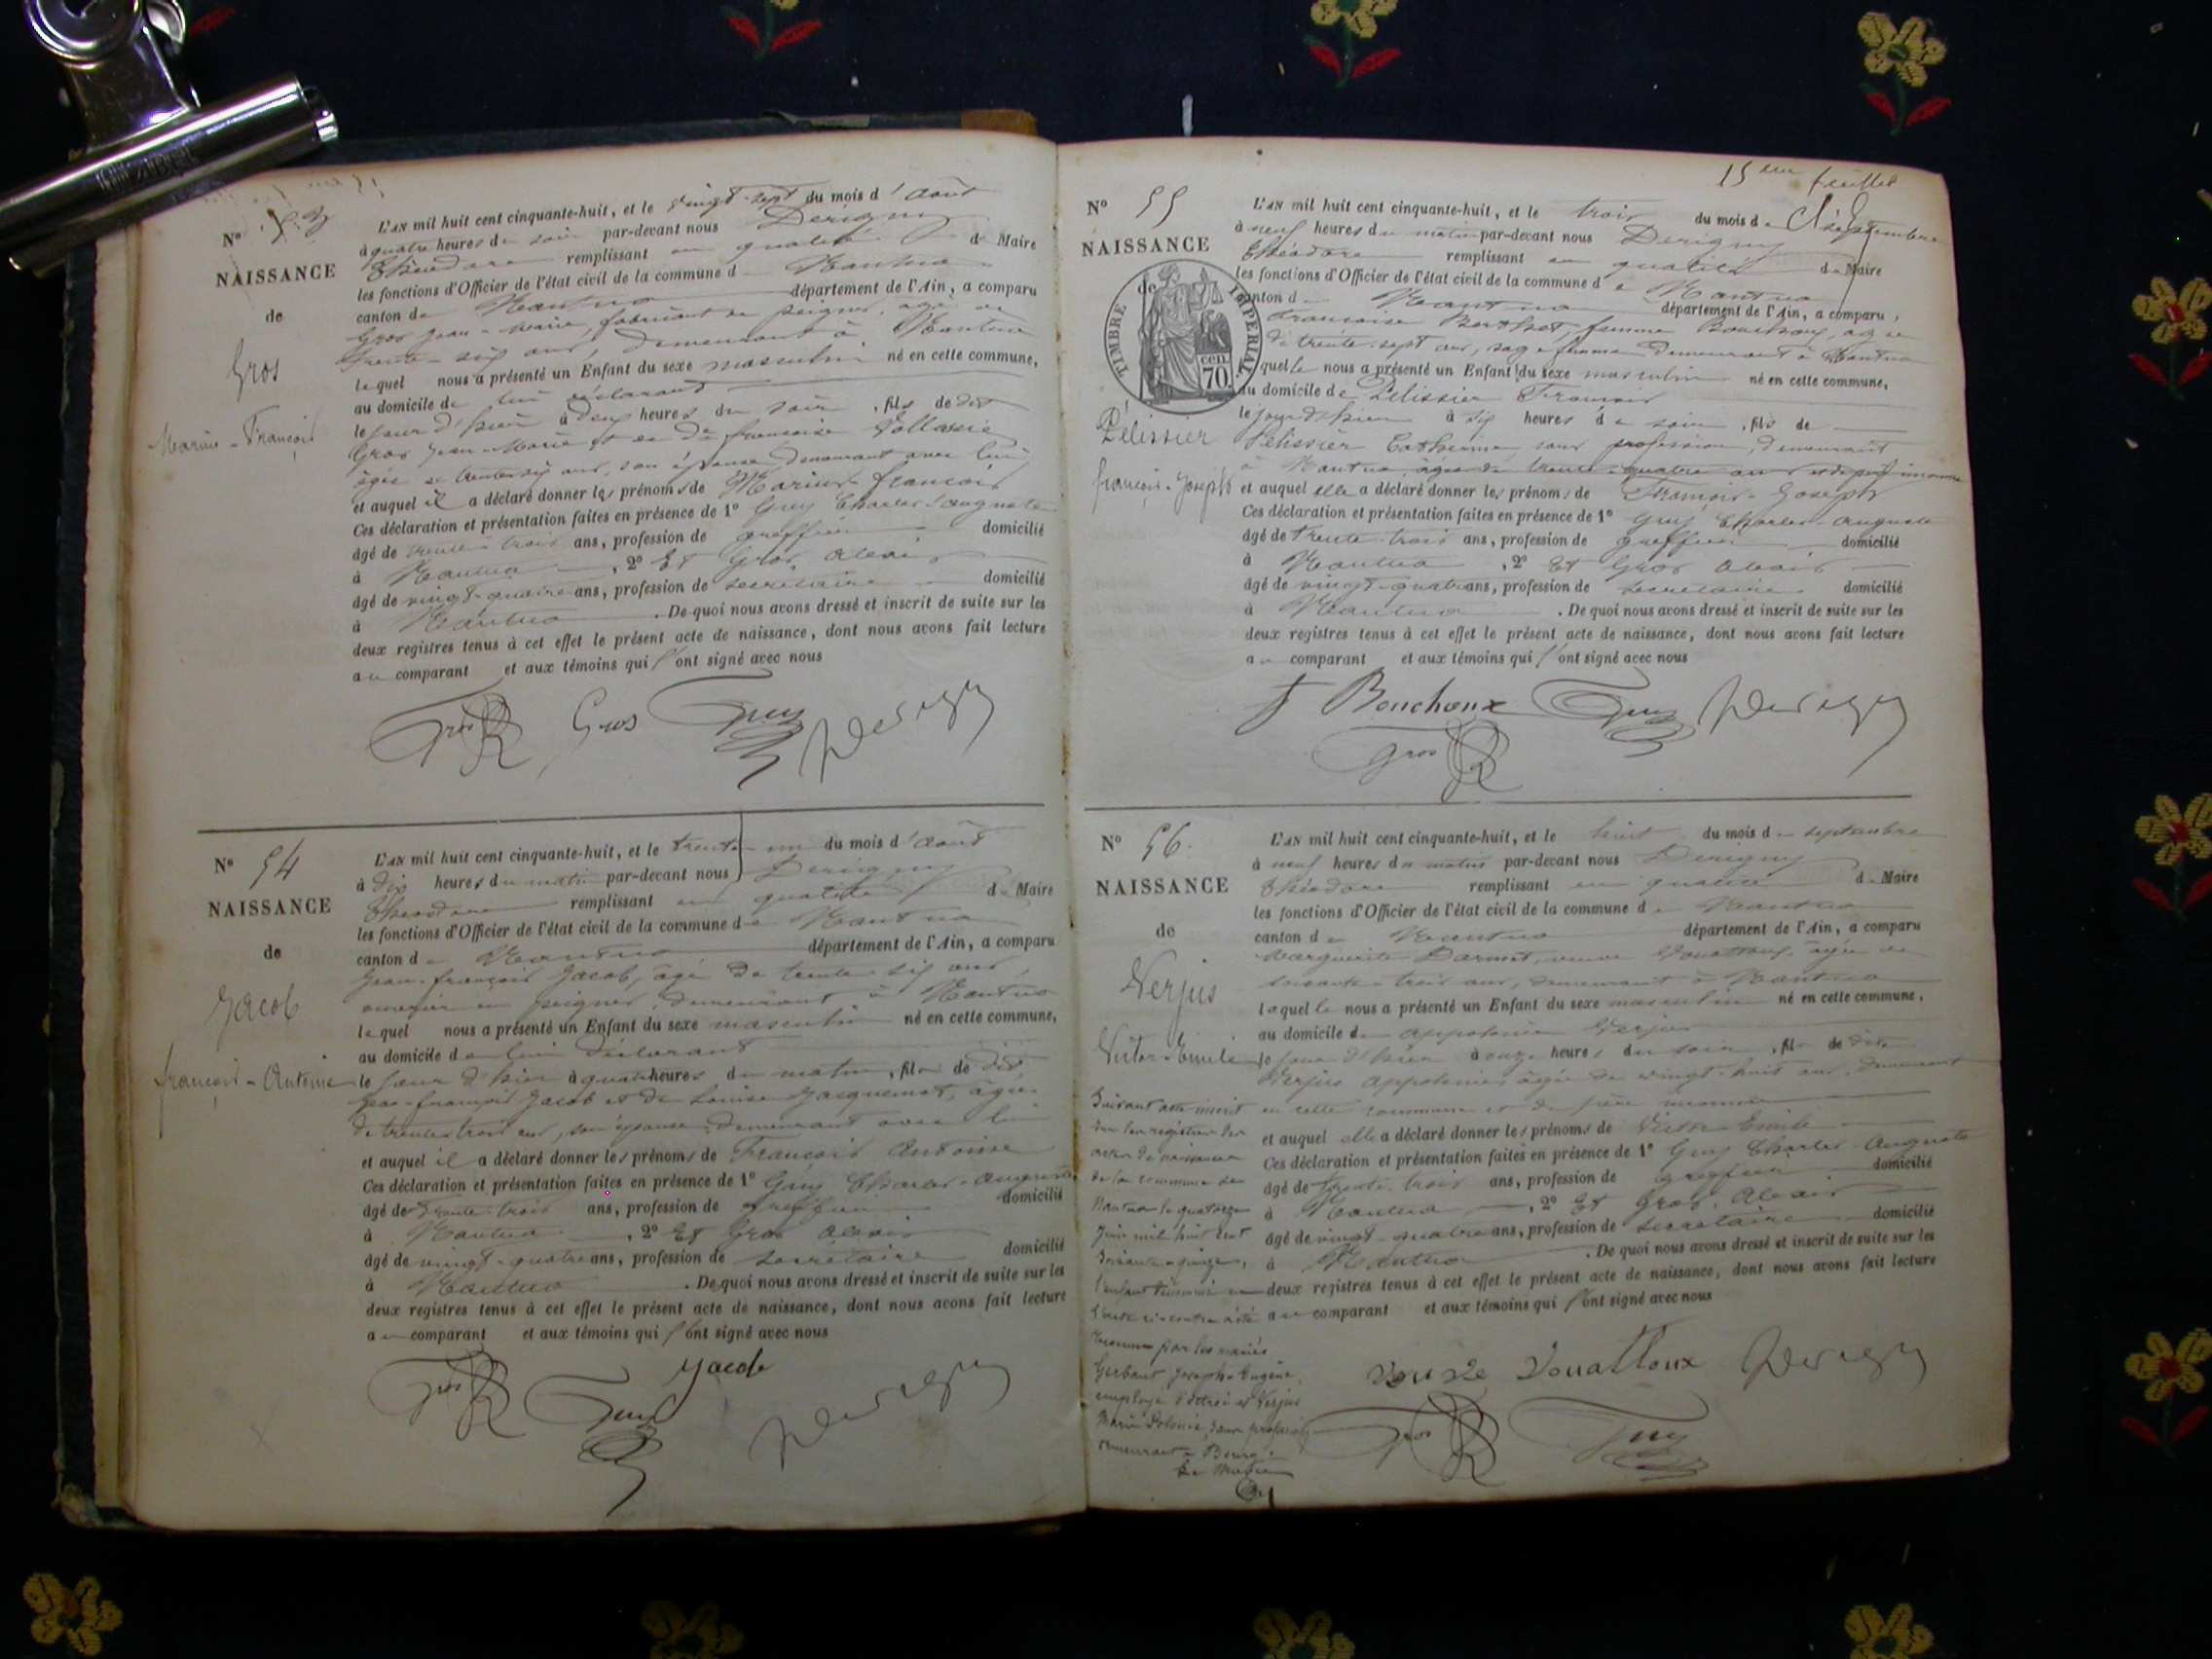 N° 53
NAISSANCE
de
Gros
Marius-François
L'AN mil huit cent cinquante-huit, et le vingt-sept du mois d'août
à quatre heures du soir par-devant nous Derigny
Théodore remplissant en qualité de Maire
les fonctions d'Officier de l'état civil de la commune de Nantua
canton de Nantua département de l'Ain, a comparu
Gros Jean-Marie, fabricant de peignes, âgé de
trente-six ans, demeurant à Nantua
lequel nous a présenté un Enfant du sexe masculin né en cette commune,
au domicile de lui déclarant
le jour d'hier à deux heures du soir, fils de dit
Gros Jean-Marie et de De françoise
âgée de trente six ans, son épouse demeurant avec lui
et auquel il a déclaré donner les prénoms de Marius françois
Ces déclaration et présentation faites en présence de 1° Guy Charles-Auguste
âgé de trente-trois ans, profession de greffier domicilié
à Nantua, 2° Et Gros Alexis
âgé de vingt-quatre ans, profession de secrétaire domicilié
à Nantua. De quoi nous avons dressé et inscrit de suite sur les
deux registres tenus à cet effet le présent acte de naissance, dont nous avons fait lecture
au comparant et aux témoins qui l'ont signé avec nous
Gros Gros Guy Derigny
N° 54
NAISSANCE
de
Jacob
françois-Antoine
L'AN mil huit cent cinquante-huit, et le trente-un du mois d'août
à dix heures du matin par-devant nous Derigny
Théodore remplissant en qualité de Maire
les fonctions d'Officier de l'état civil de la commune de Nantua
canton de Nantua département de l'Ain, a comparu
Jean-françois Jacob, âgé de trente-six ans,
ouvrier en peignes, demeurant à Nantua
lequel nous a présenté un Enfant du sexe masculin né en cette commune,
au domicile de lui déclarant
le jour d'hier à quatre heures du matin, fils de dit
Jean-françois Jacob et de Louise Jacquemot, âgée
de trente trois ans, son épouse demeurant avec lui
et auquel il a déclaré donner les prénoms de François Antoine
Ces déclaration et présentation faites en présence de 1° Guy Charles-Auguste
âgé de trente-trois ans, profession de greffier domicilié
à Nantua, 2° Et Gros Alexis
âgé de vingt-quatre ans, profession de secrétaire domicilié
à Nantua. De quoi nous avons dressé et inscrit de suite sur les
deux registres tenus à cet effet le présent acte de naissance, dont nous avons fait lecture
au comparant et aux témoins qui l'ont signé avec nous
Gros Guy Jacob Derigny
15eme feuillet
N° 55
NAISSANCE
de
TIMBRE IMPERIAL
70 cen.
Pélissier
françois-Joseph
L'AN mil huit cent cinquante-huit, et le trois du mois de septembre
à neuf heures du matin par-devant nous Derigny
Théodore remplissant en qualité de Maire
les fonctions d'Officier de l'état civil de la commune de Nantua
canton de Nantua département de l'Ain, a comparu,
Françoise Berthet, femme Bouchoux, âgée
de trente-sept ans, sage femme demeurant à Nantua
laquelle nous a présenté un Enfant du sexe masculin né en cette commune,
au domicile de Pélissier François
le jour d'hier à six heures du soir, fils de
Pélissier Catherine, sans profession, demeurant
à Nantua, âgée de trente-quatre ans et de père inconnu
et auquel elle a déclaré donner les prénoms de François-Joseph
Ces déclaration et présentation faites en présence de 1° Guy Charles-Auguste
âgé de trente-trois ans, profession de greffier domicilié
à Nantua, 2° Et Gros Alexis
âgé de vingt-quatre ans, profession de secrétaire domicilié
à Nantua. De quoi nous avons dressé et inscrit de suite sur les
deux registres tenus à cet effet le présent acte de naissance, dont nous avons fait lecture
au comparant et aux témoins qui l'ont signé avec nous
f Bouchoux Guy Derigny
Gros
N° 56.
NAISSANCE
de
Verjus
Victor-Emile
L'AN mil huit cent cinquante-huit, et le huit du mois de septembre
à neuf heures du matin par-devant nous Derigny
Théodore remplissant en qualité de Maire
les fonctions d'Officier de l'état civil de la commune de Nantua
canton de Nantua département de l'Ain, a comparu
Marguerite Darmet, veuve Vouattoux, âgée de
soixante-trois ans, demeurant à Nantua
laquelle nous a présenté un Enfant du sexe masculin né en cette commune,
au domicile de Appolonie Verjus
le jour d'hier à onze heures du soir, fils de dite
Verjus Appolonie âgée de vingt-huit ans, demeurant
en cette commune et de père inconnu
et auquel elle a déclaré donner les prénoms de Victor-Emile
Ces déclaration et présentation faites en présence de 1° Guy Charles-Auguste
âgé de trente-trois ans, profession de greffier domicilié
à Nantua, 2° Et Gros Alexis
âgé de vingt-quatre ans, profession de secrétaire domicilié
à Nantua. De quoi nous avons dressé et inscrit de suite sur les
deux registres tenus à cet effet le présent acte de naissance, dont nous avons fait lecture
au comparant et aux témoins qui l'ont signé avec nous
veuve Vouattoux Derigny
Gros Guy
Suivant acte inscrit
sur les registres des
actes de naissance
de la commune de
Nantua le quatorze
Juin mil huit cent
soixante-quinze,
l'enfant dénommé en
l'acte ci-contre a été
reconnu par les mariés
Gerbaut Joseph-Eugène,
employé d'octroi et Verjus
Marie Polonie, sans profession
demeurant à Bourg.
Le Maire